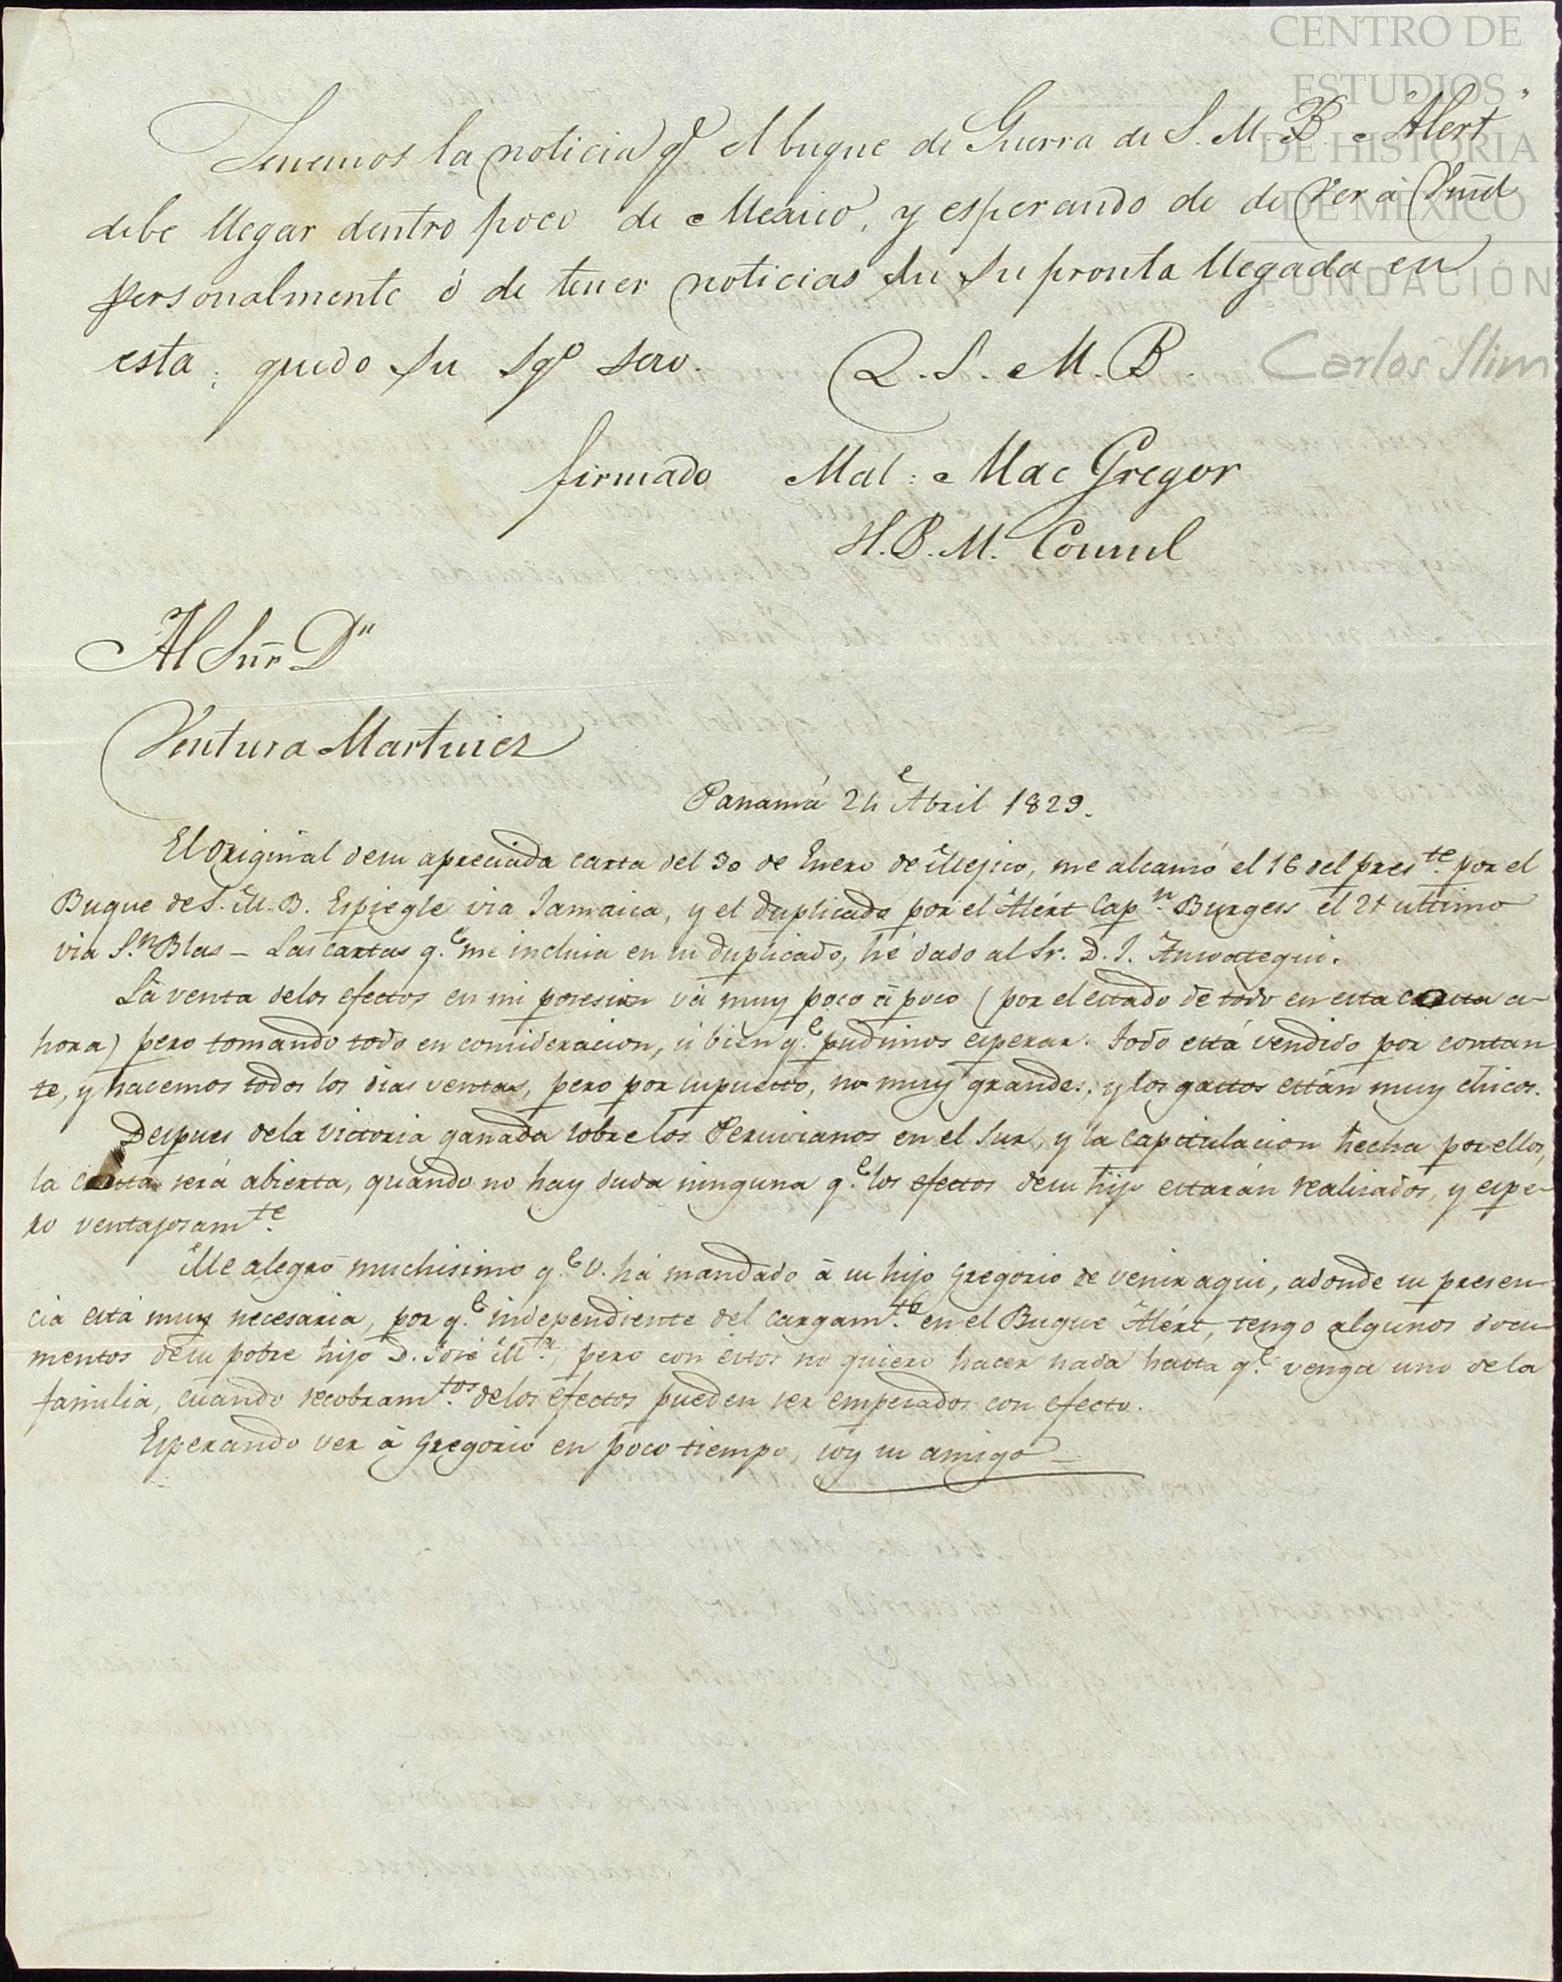 CENTRO DE
ESTUDIOS
DE HISTORIA
DE MEXICO
FUNDACIÓN
Carlos Slim
Tenemos la noticia qe el buque de Guerra de S. M. B. Alert"
debe llegar dentro poco de Mexico, y esperando de de Ver à Vmd
personalmente ó de tener noticias su su pronta llegada en
esta; quedo su Sgo Serv. Q. S. M. B.
firmado Mal: Mac Gregor
H. B. M. Consul
Al Snr Dn
Ventura Martinez
Panamá 24 Abril 1829.
El Original de su apreciada carta del 30 de Enero de Mejico, me alcansó el 16 del preste. por el
Buque de S. M. B. Espiegle via Jamaica, y el duplicado por el Alért Capn. Burgess el 2+ ultimo
via Sn. Blas – Las cartas q.e me incluia en su duplicado, hé dado al Sr. D. J.
La venta de los efectos en mi posesion vá muy poco á poco (por el estado de todo en esta costa a-
hora) pero tomando todo en consideracion, si bien q.e pudimos esperar. Todo está vendido por contan
te, y hacemos todos los dias ventas, pero por supuesto, no muy grandes, y los gastos están muy chicos.
Despues de la victoria ganada sobre los Peruvianos en el Sur, y la capitulacion hecha por ellos,
la costa será abierta, quando no hay duda ninguna q.e los efectos de su hijo estarán realisados, y espe-
ro ventajosamte.
Me alegro muchisimo q.e V. há mandado à su hijo Gregorio de venir aqui, adonde su presen-
cia está muy necesaria, por q.e independiente del cargamto. en el Buque Alért, tengo algunos docu
mentos de su pobre hijo D. José Ma., pero con estos no quiero hacer nada hasta q.e venga uno de la
familia, cuando recobramtos. de los efectos pueden ser emperados con efecto.
Esperando ver à Gregorio en poco tiempo, soy su amigo –